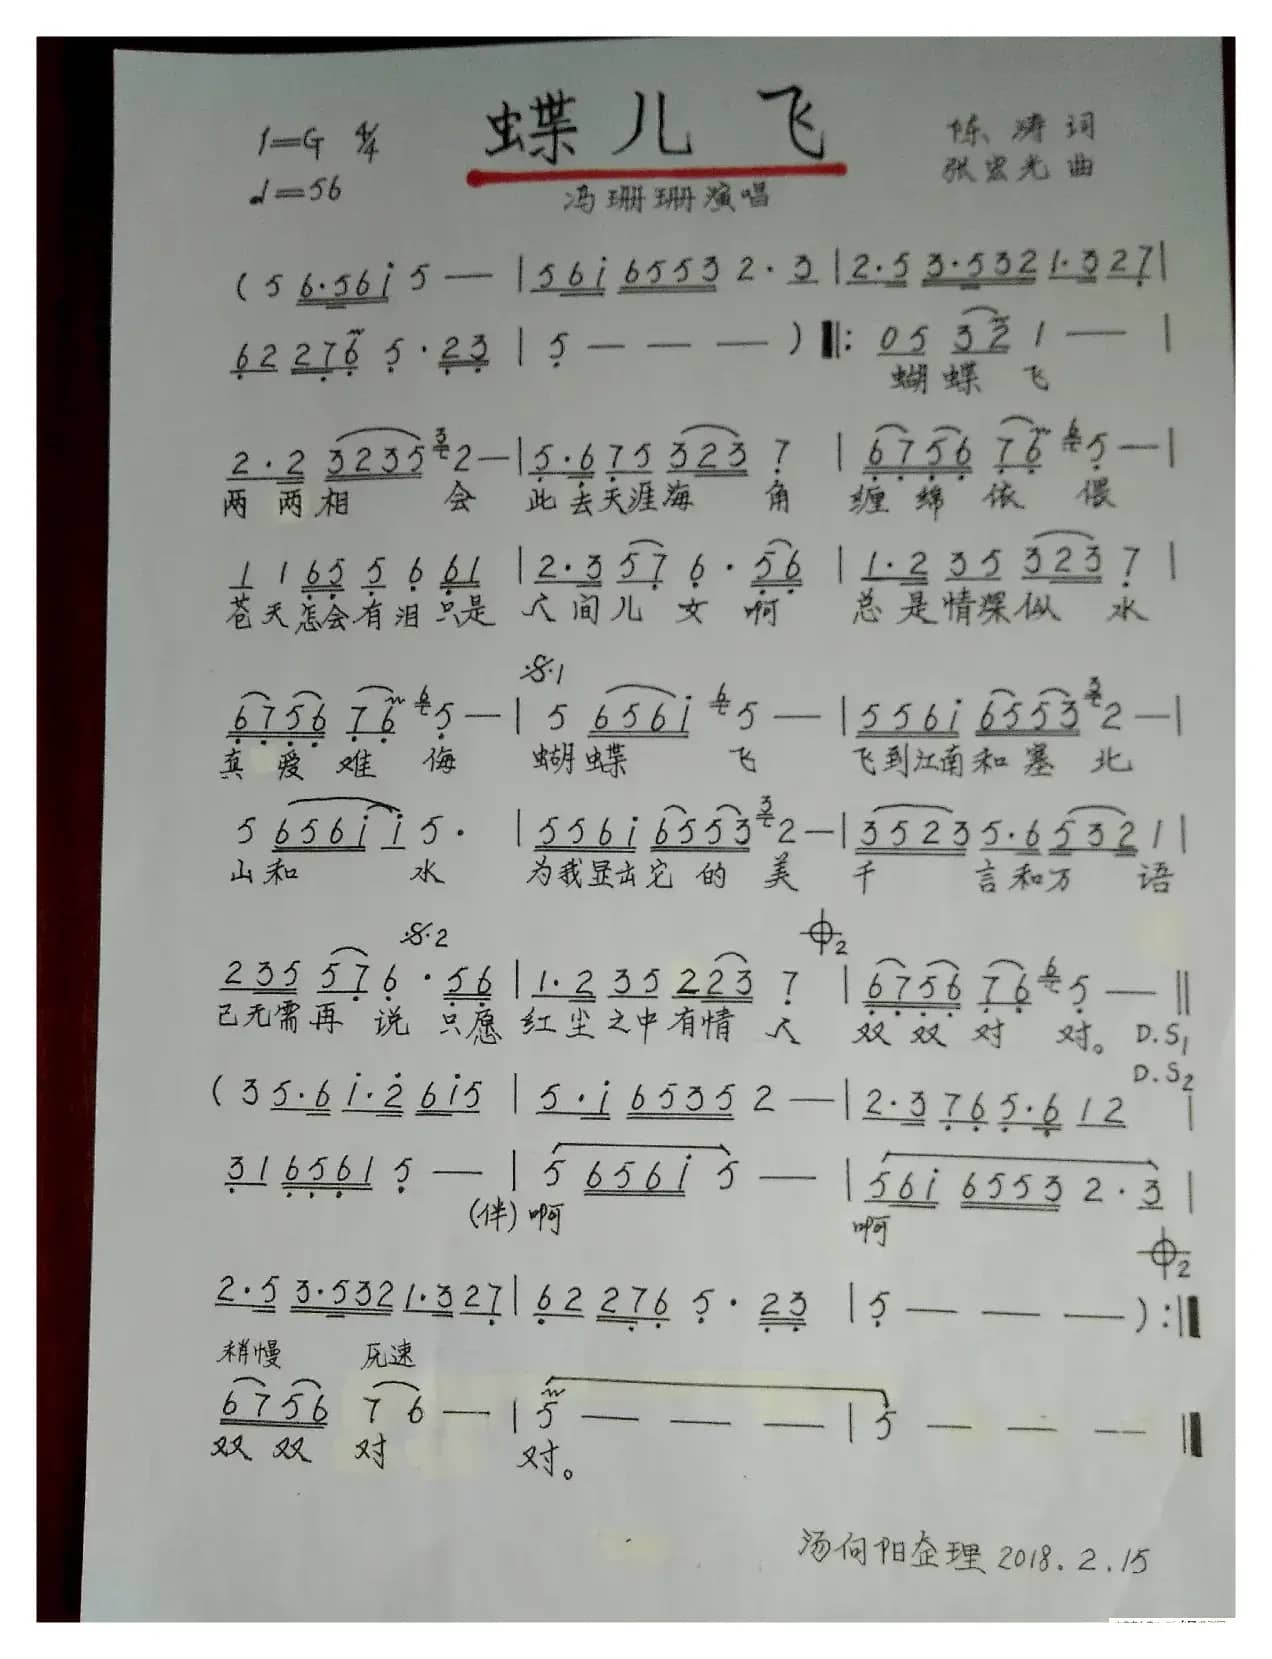 蝶儿飞
1=G 4/4
陈涛词
♩=56
张宏光曲
冯珊珊演唱
( 5 6·5 6 i 5 — | 5 6 i 6 5 5 3 2 · 3 | 2·5 3·5 3 2 1·3 2 7 |
6 2 2 7 6 5 · 2 3 | 5 — — — ) ‖: 0 5 3 2 1 — |
蝴蝶 飞
2·2 3 2 3 5 3 2 — | 5·6 7 5 3 2 3 7 | 6 7 5 6 7 6 6 5 — |
两 两相 会 此去天涯海 角 缠 绵 依 偎
1 1 6 5 5 6 6 1 | 2·3 5 7 6 · 5 6 | 1·2 3 5 3 2 3 7 |
苍天怎会有泪只是 人间儿 女 啊 总是情深似 水
𝄋1
6 7 5 6 7 6 6 5 — | 5 6 5 6 i 6 5 — | 5 5 6 i 6 5 5 3 3 2 — |
真 爱 难 侮 蝴蝶 飞 飞到江南和 塞 北
5 6 5 6 i i 5 · | 5 5 6 i 6 5 5 3 3 2 — | 3 5 2 3 5·6 5 3 2 1 |
山和 水 为我显出它 的 美 千 言和万 语
𝄋2 𝄌2
2 3 5 5 7 6 · 5 6 | 1·2 3 5 2 2 3 7 | 6 7 5 6 7 6 6 5 — ‖
已无需再 说 只愿 红尘之中有情 人 双 双 对 对。 D.S1
D.S2
( 3 5·6 i·2 6 i 5 | 5·i 6 5 3 5 2 — | 2·3 7 6 5·6 1 2 |
3 1 6 5 6 1 5 — | 5 6 5 6 i 5 — | 5 6 i 6 5 5 3 2 · 3 |
(伴) 啊 啊
𝄌2
2·5 3·5 3 2 1·3 2 7 | 6 2 2 7 6 5 · 2 3 | 5 — — — ) :‖
稍慢 原速
6 7 5 6 7 6 — | 5 — — — | 5 — — — ‖
双 双 对 对。
汤向阳整理 2018.2.15